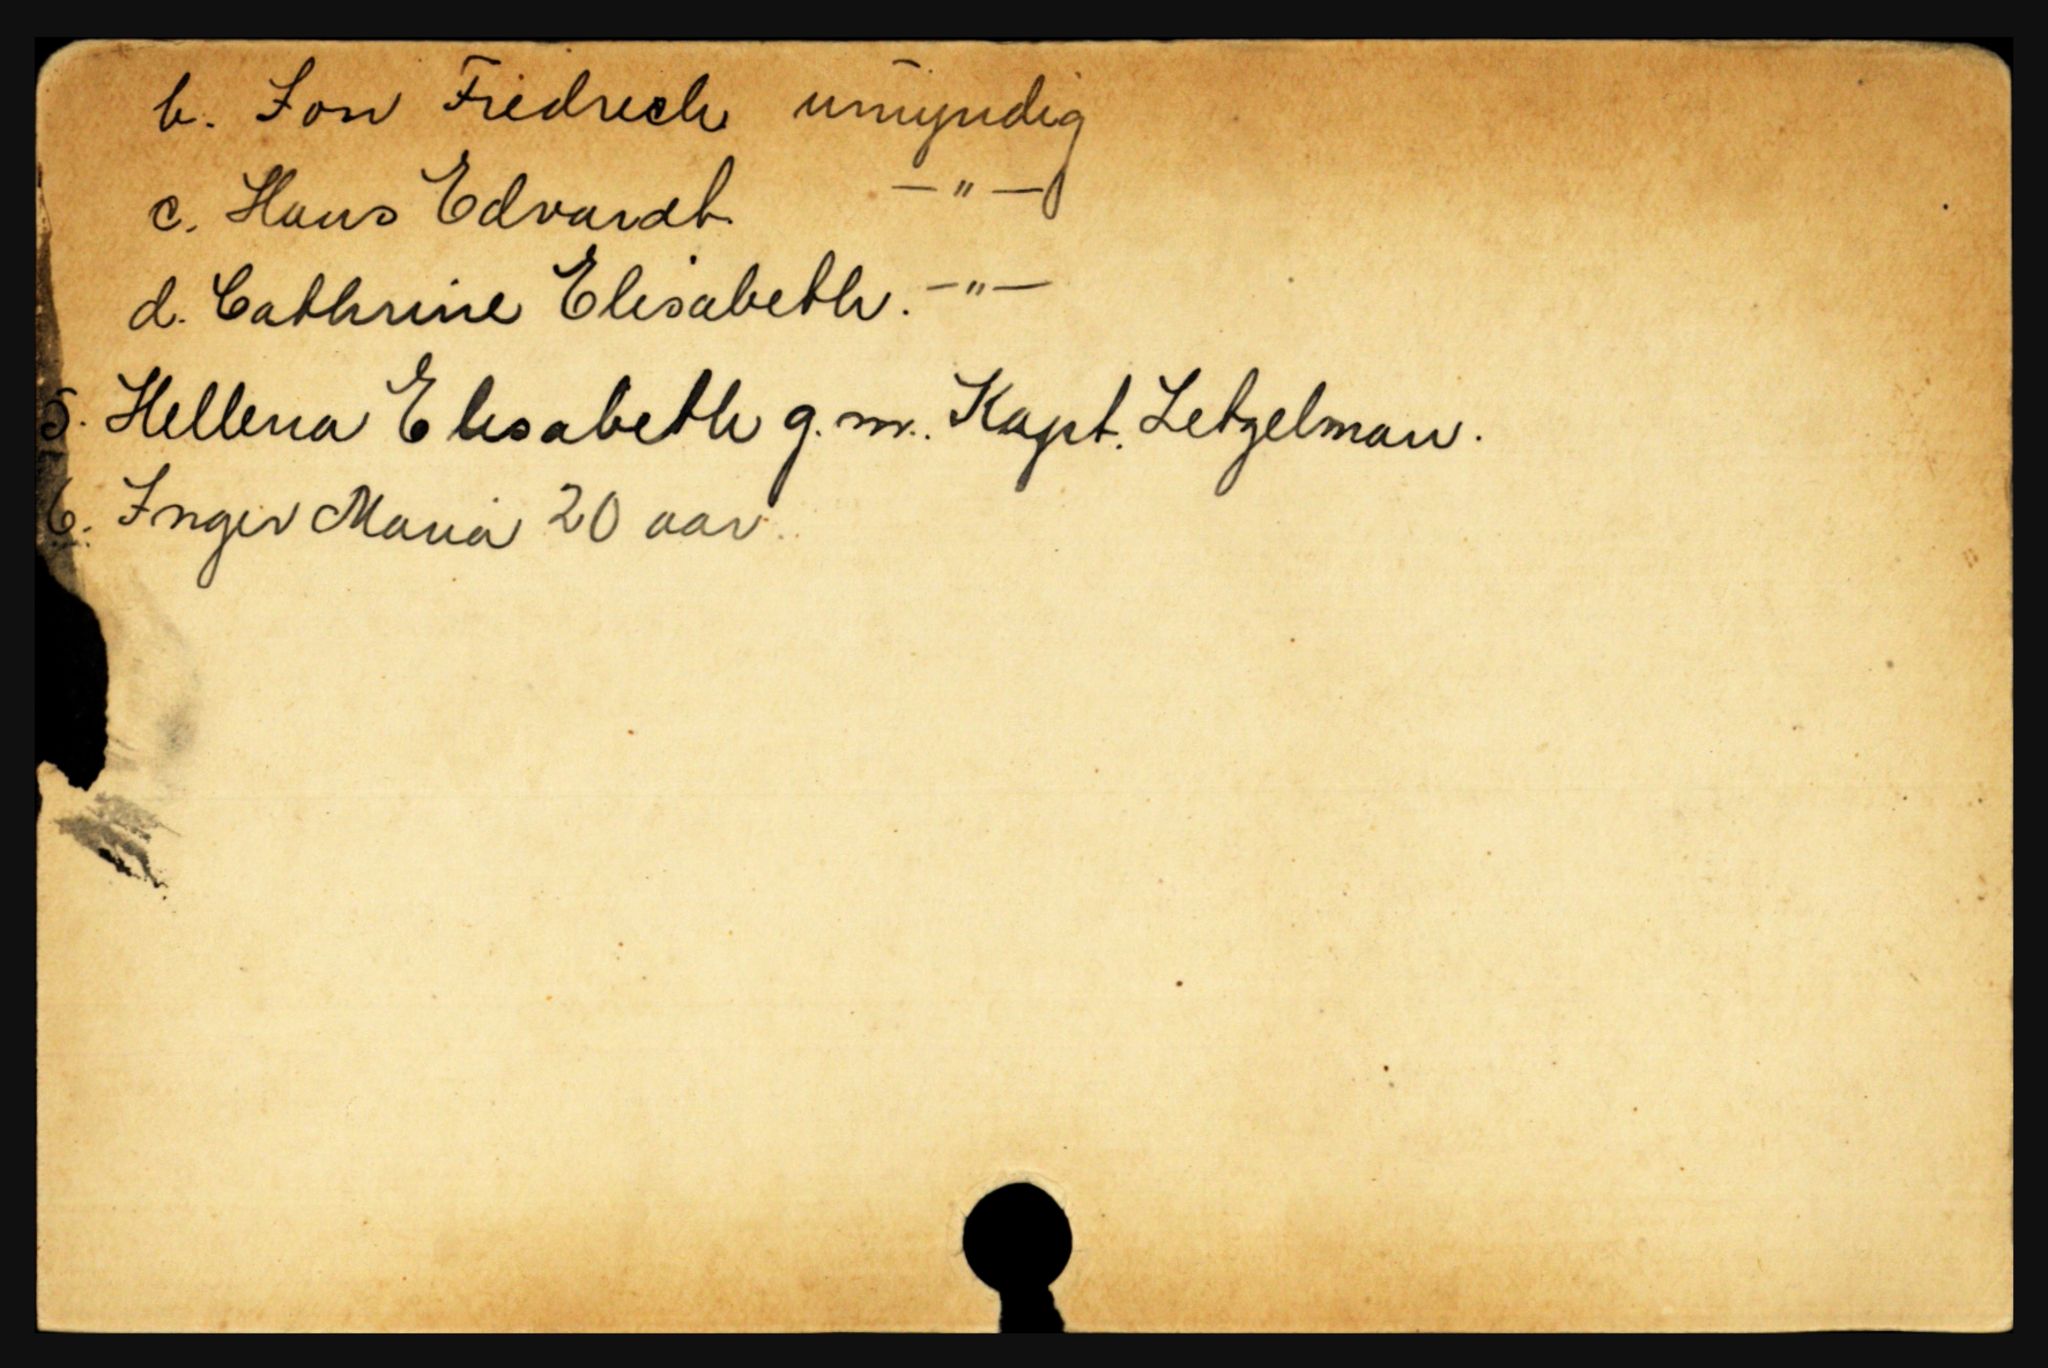 b. Jon Friedrich umyndig
c. Hans Edvardt —"—
d. Cathrine Elisabeth. —"—
5. Hellena Elisabeth g. m. Kapt. Letzelman.
6. Inger Maria 20 aar.